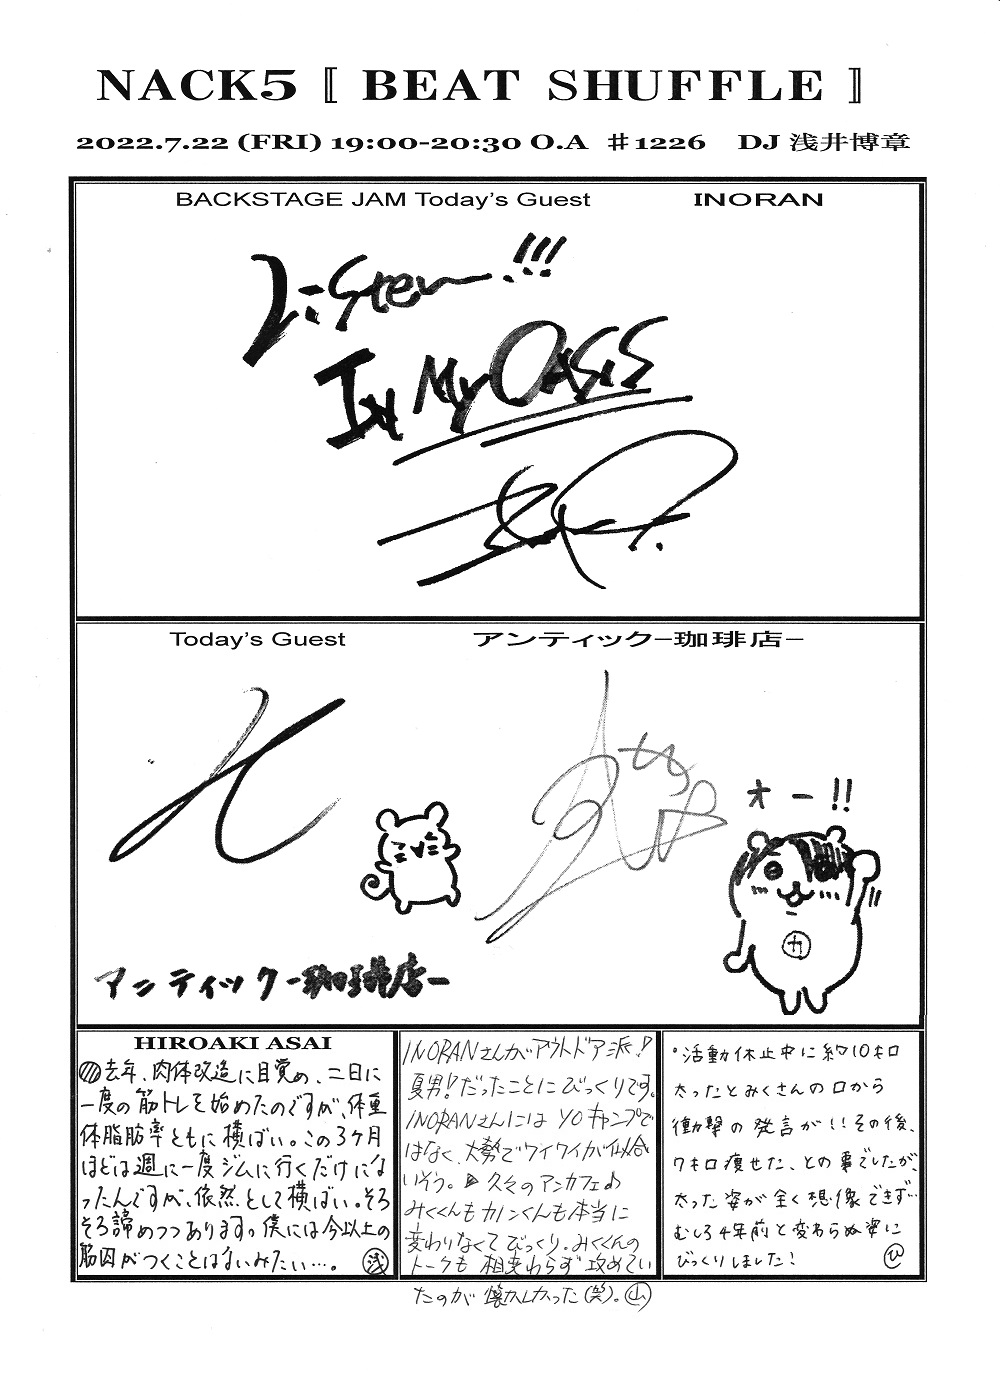 NACK5 〚 BEAT SHUFFLE 〛
2022.7.22 (FRI) 19:00-20:30 O.A ♯1226 DJ 浅井博章
BACKSTAGE JAM Today's Guest INORAN
Listen !!!
In My Oasis
Today's Guest アンティック−珈琲店−
オー!!
カ
アンティック-珈琲店-
HIROAKI ASAI
去年、肉体改造に目覚め、二日に
一度の筋トレを始めたのですが、体重
体脂肪率ともに横ばい。この3ヶ月
ほどは週に一度ジムに行くだけにな
ったんですが、依然として横ばい。そろ
そろ諦めつつあります。僕には今以上の
筋肉がつくことはないみたい…。 浅
INORANさんがアウトドア派!
夏男!だったことにびっくりです。
INORANさんには YOキャンプで
はなく、大勢でワイワイが似合
いそう。 久々のアンカフェ♪
みくくんもカノンくんも本当に
変わりなくてびっくり。みくくんの
トークも相変わらず攻めてい
たのが懐かしかった(笑)。山
・活動休止中に約10キロ
太ったとみくさんの口から
衝撃の発言が!!その後、
7キロ痩せた、との事でしたが、
太った姿が全く想像できず…
むしろ4年前と変わらぬ姿に
びっくりしました! ひ